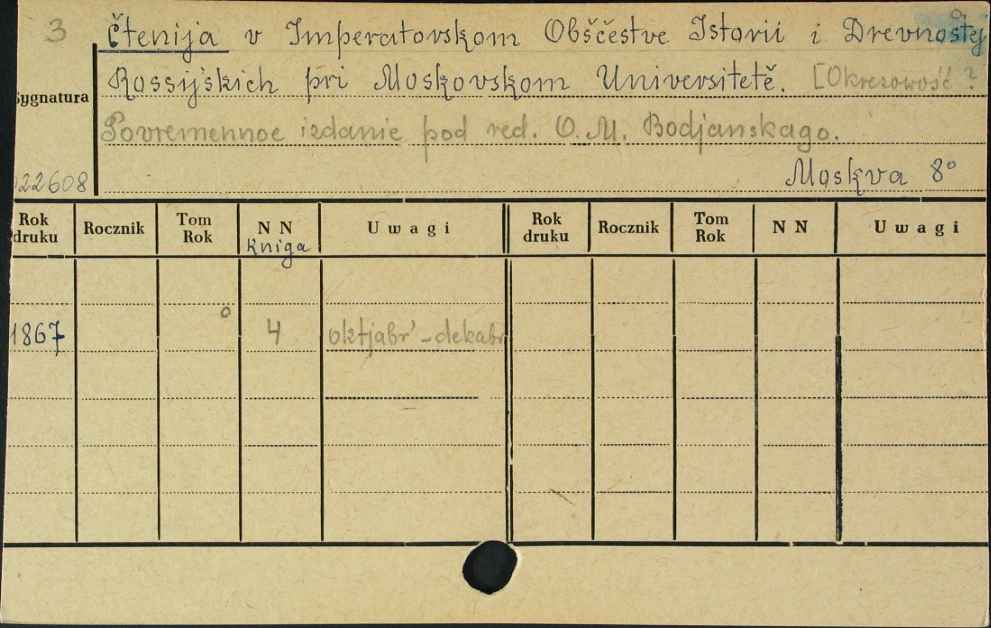 3 Čtenija v Imperatovskom Obščestve Istorii i Drevnostej
Rossijskich pri Moskovskom Universitetě. [Okresowość ?
Sygnatura
Povremennoe izdanie pod red. O. M. Bodjanskago.
022608 Moskva 8°
Rok druku Rocznik Tom Rok N N kniga Uwagi Rok druku Rocznik Tom Rok N N Uwagi
1867 4 oktjabr'-dekabr